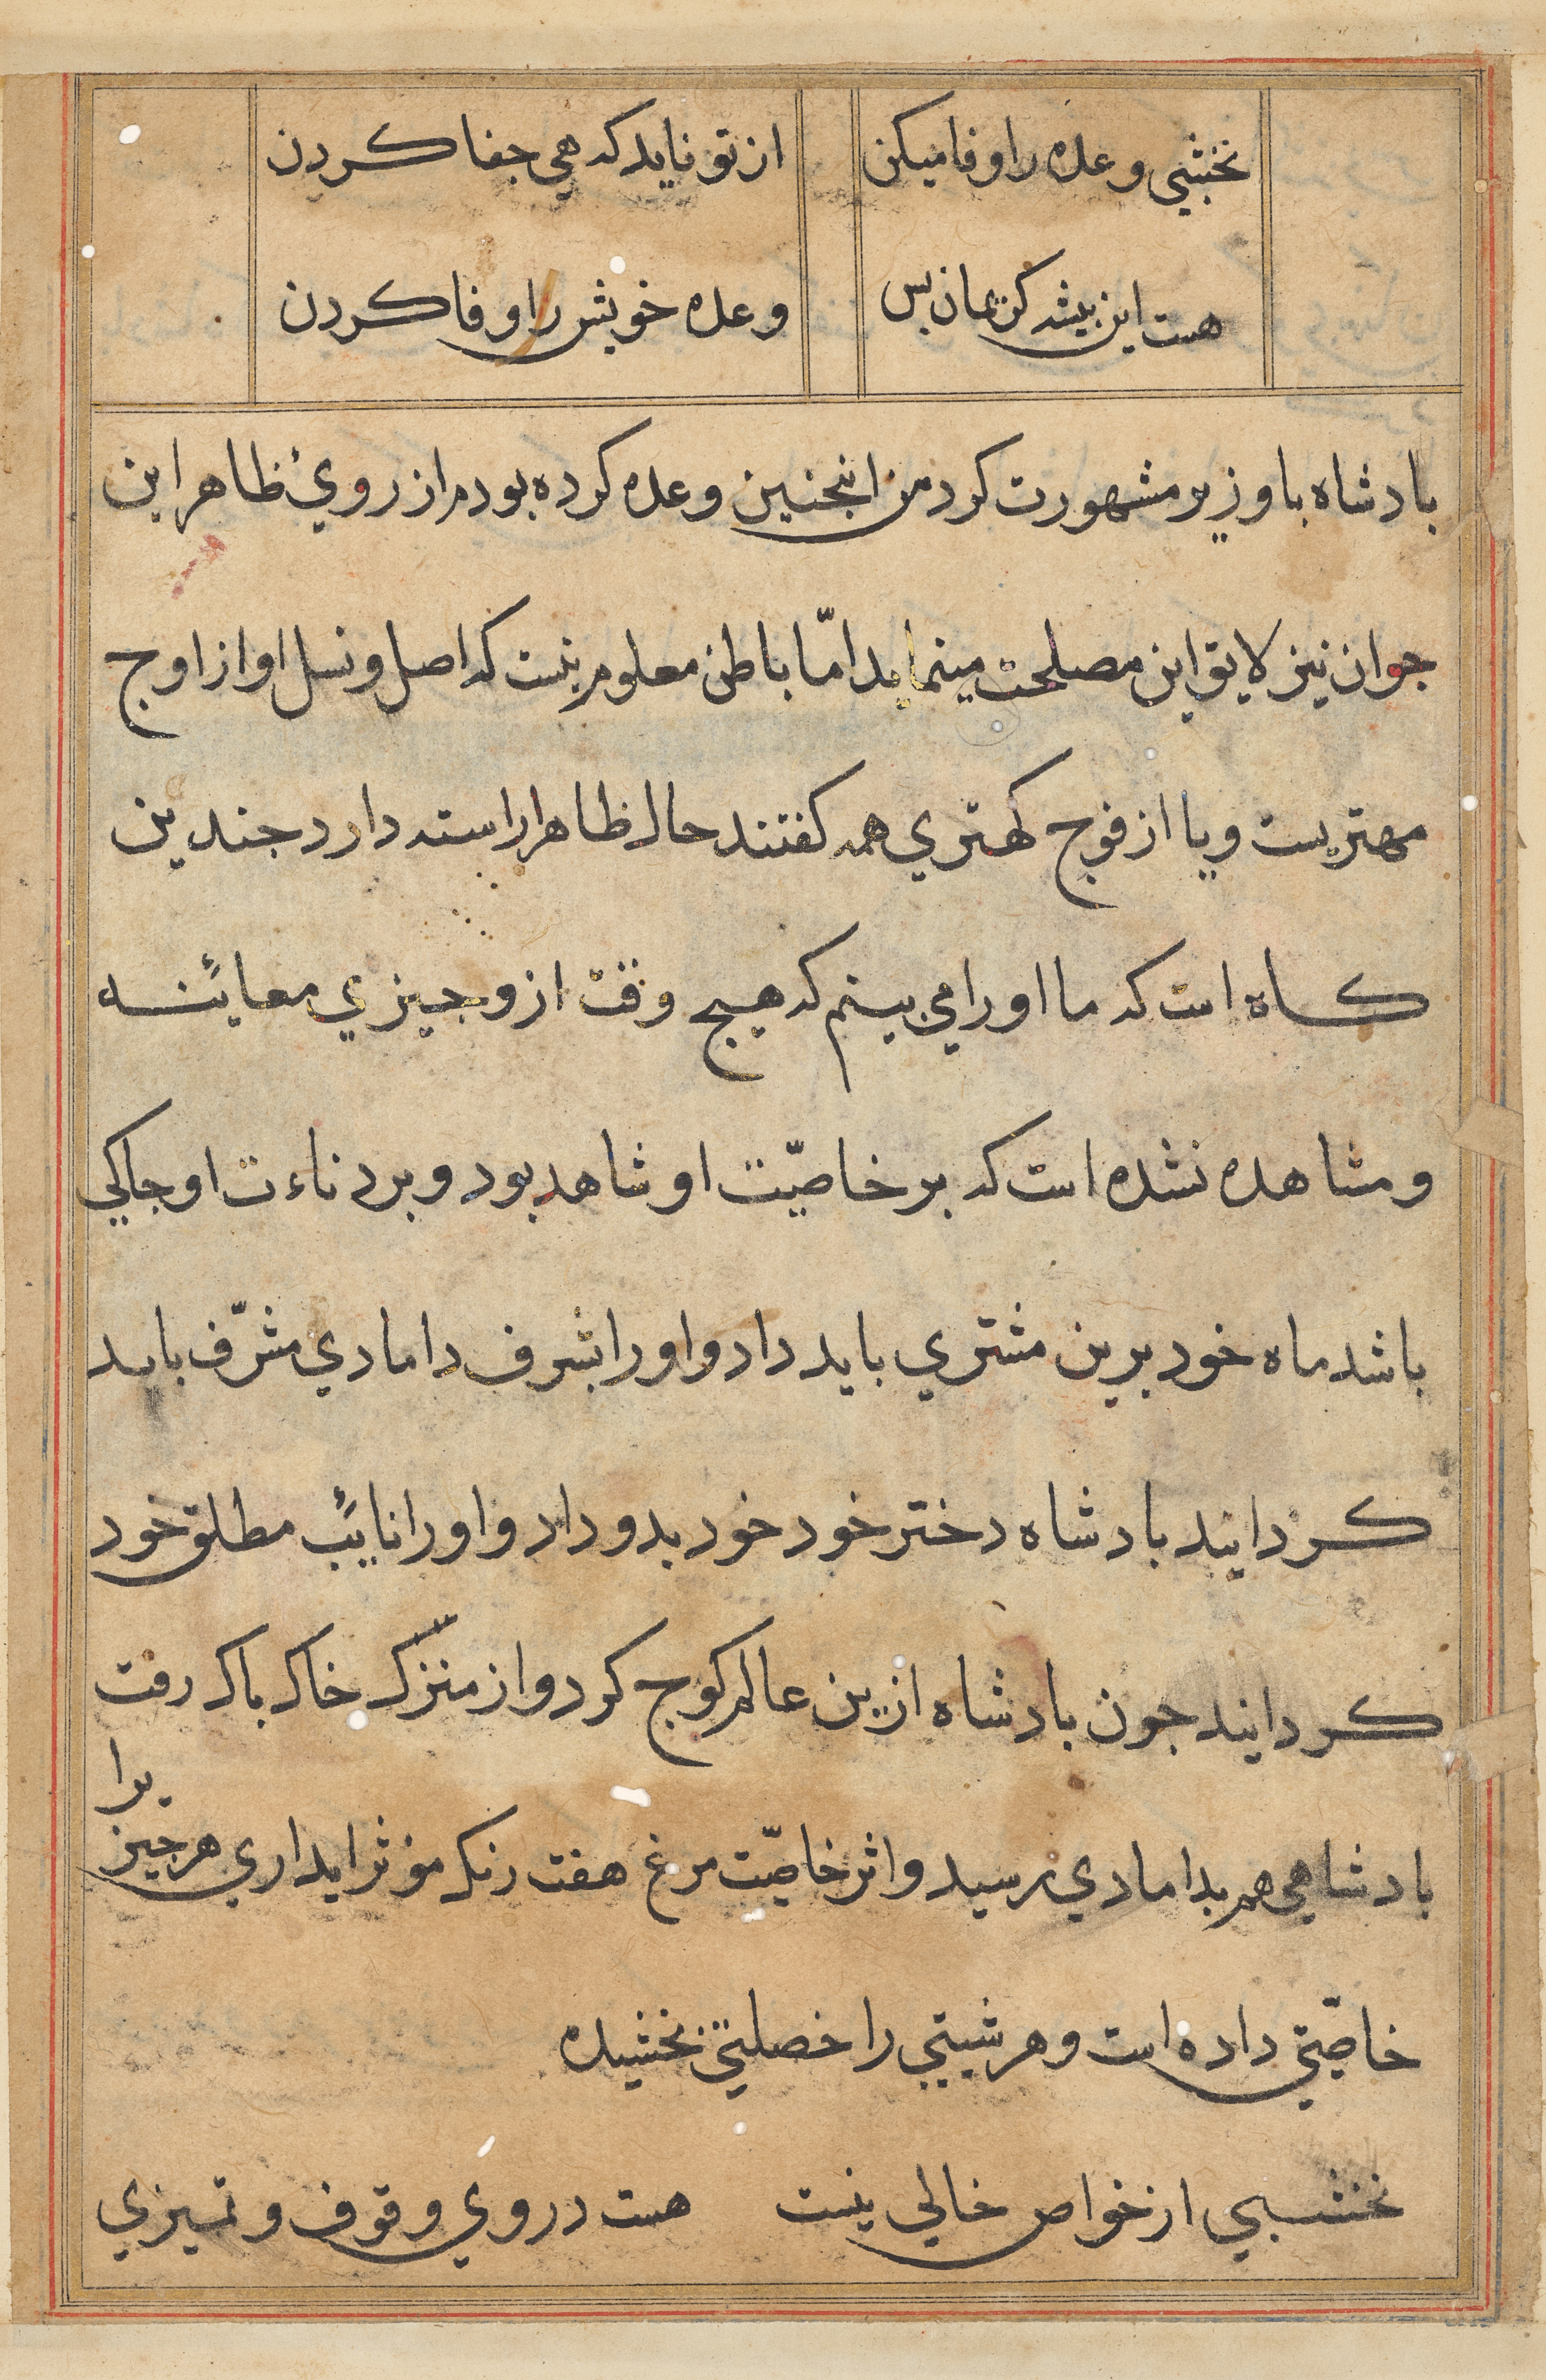 نخشبي وعده را وفا ميكن از تو نايد كه هي جفا كردن
هست اين بيشه كريمان بس وعده خويش را وفا كردن
بادشاه با وزير مشهورت كرد من انجنين وعده كرده بودم از روئ ظاهر اين
جوان نيز لايق اين مصلحت مينمايد امّا باطن معلوم نيست كه اصل و نسل او از اوج
مهتريست و يا از فوج كهتري همه كفتند حال ظاهر اراسته دارد جندين
كاه است كه ما او را مي بينم كه هيج وقت ازو جيزي معائنه
و مشاهده نشده است كه بر خاصيّت او شاهد بود و بر دناءت او حاكي
باشد ماه خود برين مشتري بايد داد و او را بشرف دامادي مشرّف بايد
كردانيد بادشاه دختر خود خود بدو داد و او را نائب مطلق خود
كردانيد جون بادشاه ازين عالم كوج كرد و از منزل خاك باك رفت
بادشاهي هم بدامادي رسيد و اثر خاصيّت مرغ هفت رنك مؤثر ايد اري هر جيز يرا
خاصّيتي داده است و هر شيئي را خصلتي بخشيده
نخشبي از خواص خالي نيست هست در وي وقوف و تميزي